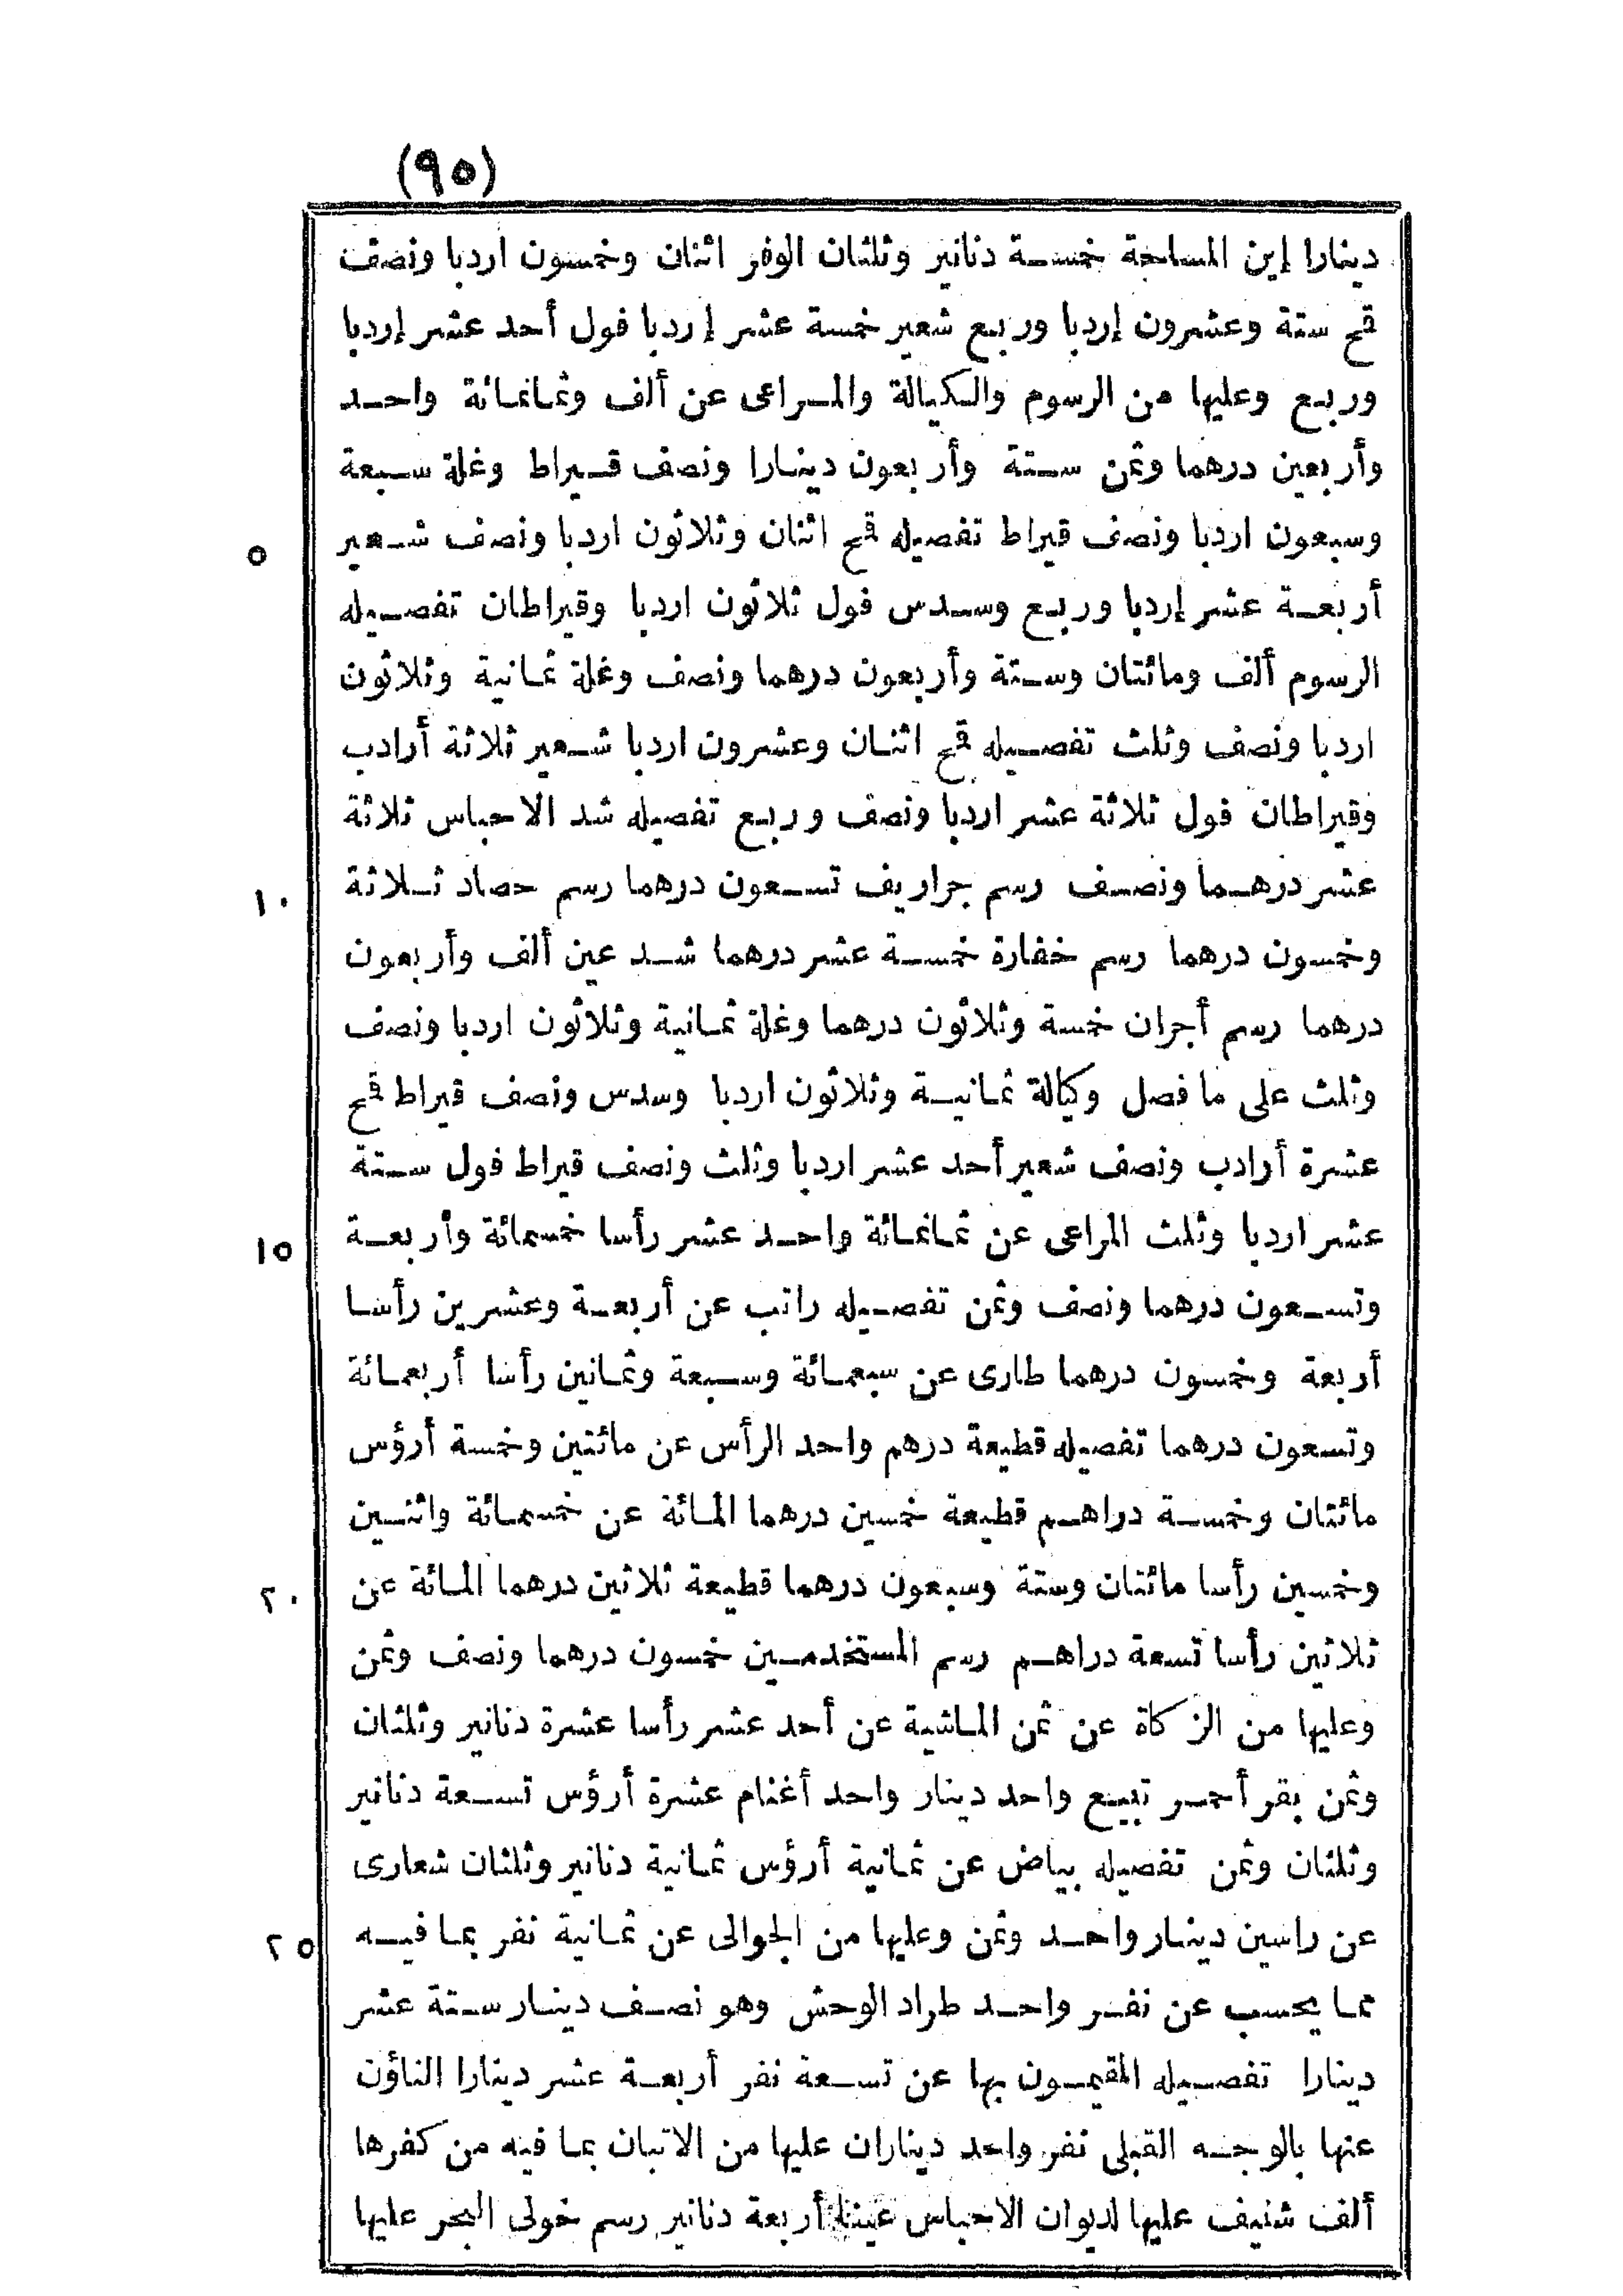 (٩٥)
دينارا إين المساحة خمسة دنانير وثلثان الوفر اثنان وخمسون اردبا ونصف
قمح ستة وعشرون إردبا وربع شعير خمسة عشر إردبا فول أحد عشر إردبا
وربع وعليها من الرسوم والكيالة والمراعى عن ألف وثمانمائة واحد
وأربعين درهما وثمن ستة وأربعون دينارا ونصف قيراط وغلة سبعة
٥ وسبعون اردبا ونصف قيراط تفصيله قمح اثنان وثلاثون اردبا ونصف شعير
أربعة عشر إردبا وربع وسدس فول ثلاثون اردبا وقيراطان تفصيله
الرسوم ألف ومائتان وستة وأربعون درهما ونصف وغلة ثمانية وثلاثون
اردبا ونصف وثلث تفصيله قمح اثنان وعشرون اردبا شعير ثلاثة أرادب
وقيراطان فول ثلاثة عشر اردبا ونصف وربع تفصيله شد الاحباس ثلاثة
١٠ عشر درهما ونصف رسم جراريف تسعون درهما رسم حصاد ثلاثة
وخمسون درهما رسم خفارة خمسة عشر درهما شد عين ألف وأربعون
درهما رسم أجران خمسة وثلاثون درهما وغلة ثمانية وثلاثون اردبا ونصف
وثلث على ما فصل وكيالة ثمانية وثلاثون اردبا وسدس ونصف قيراط قمح
عشرة أرادب ونصف شعير أحد عشر اردبا وثلث ونصف قيراط فول ستة
١٥ عشر اردبا وثلث المراعى عن ثمانمائة واحد عشر رأسا خمسمائة وأربعة
وتسعون درهما ونصف وثمن تفصيله راتب عن أربعة وعشرين رأسا
أربعة وخمسون درهما طارى عن سبعمائة وسبعة وثمانين رأسا أربعمائة
وتسعون درهما تفصيله قطيعة درهم واحد الرأس عن مائتين وخمسة أرؤس
مائتان وخمسة دراهم قطيعة خمسين درهما المائة عن خمسمائة واثنين
٢٠ وخمسين رأسا مائتان وستة وسبعون درهما قطيعة ثلاثين درهما المائة عن
ثلاثين رأسا تسعة دراهم رسم المستخدمين خمسون درهما ونصف وثمن
وعليها من الزكاة عن ثمن الماشية عن أحد عشر رأسا عشرة دنانير وثلثان
وثمن بقر أحمر تبيع واحد دينار واحد أغنام عشرة أرؤس تسعة دنانير
وثلثان وثمن تفصيله بياض عن ثمانية أرؤس ثمانية دنانير وثلثان شعارى
٢٥ عن راسين دينار واحد وثمن وعليها من الجوالى عن ثمانية نفر بما فيه
مما يحسب عن نفر واحد طراد الوحش وهو نصف دينار ستة عشر
دينارا تفصيله المقيمون بها عن تسعة نفر أربعة عشر دينارا الناؤن
عنها بالوجه القبلى نفر واحد ديناران عليها من الاتبان بما فيه من كفرها
ألف شنيف عليها لديوان الاحباس عينا أربعة دنانير رسم خولى البحر عليها